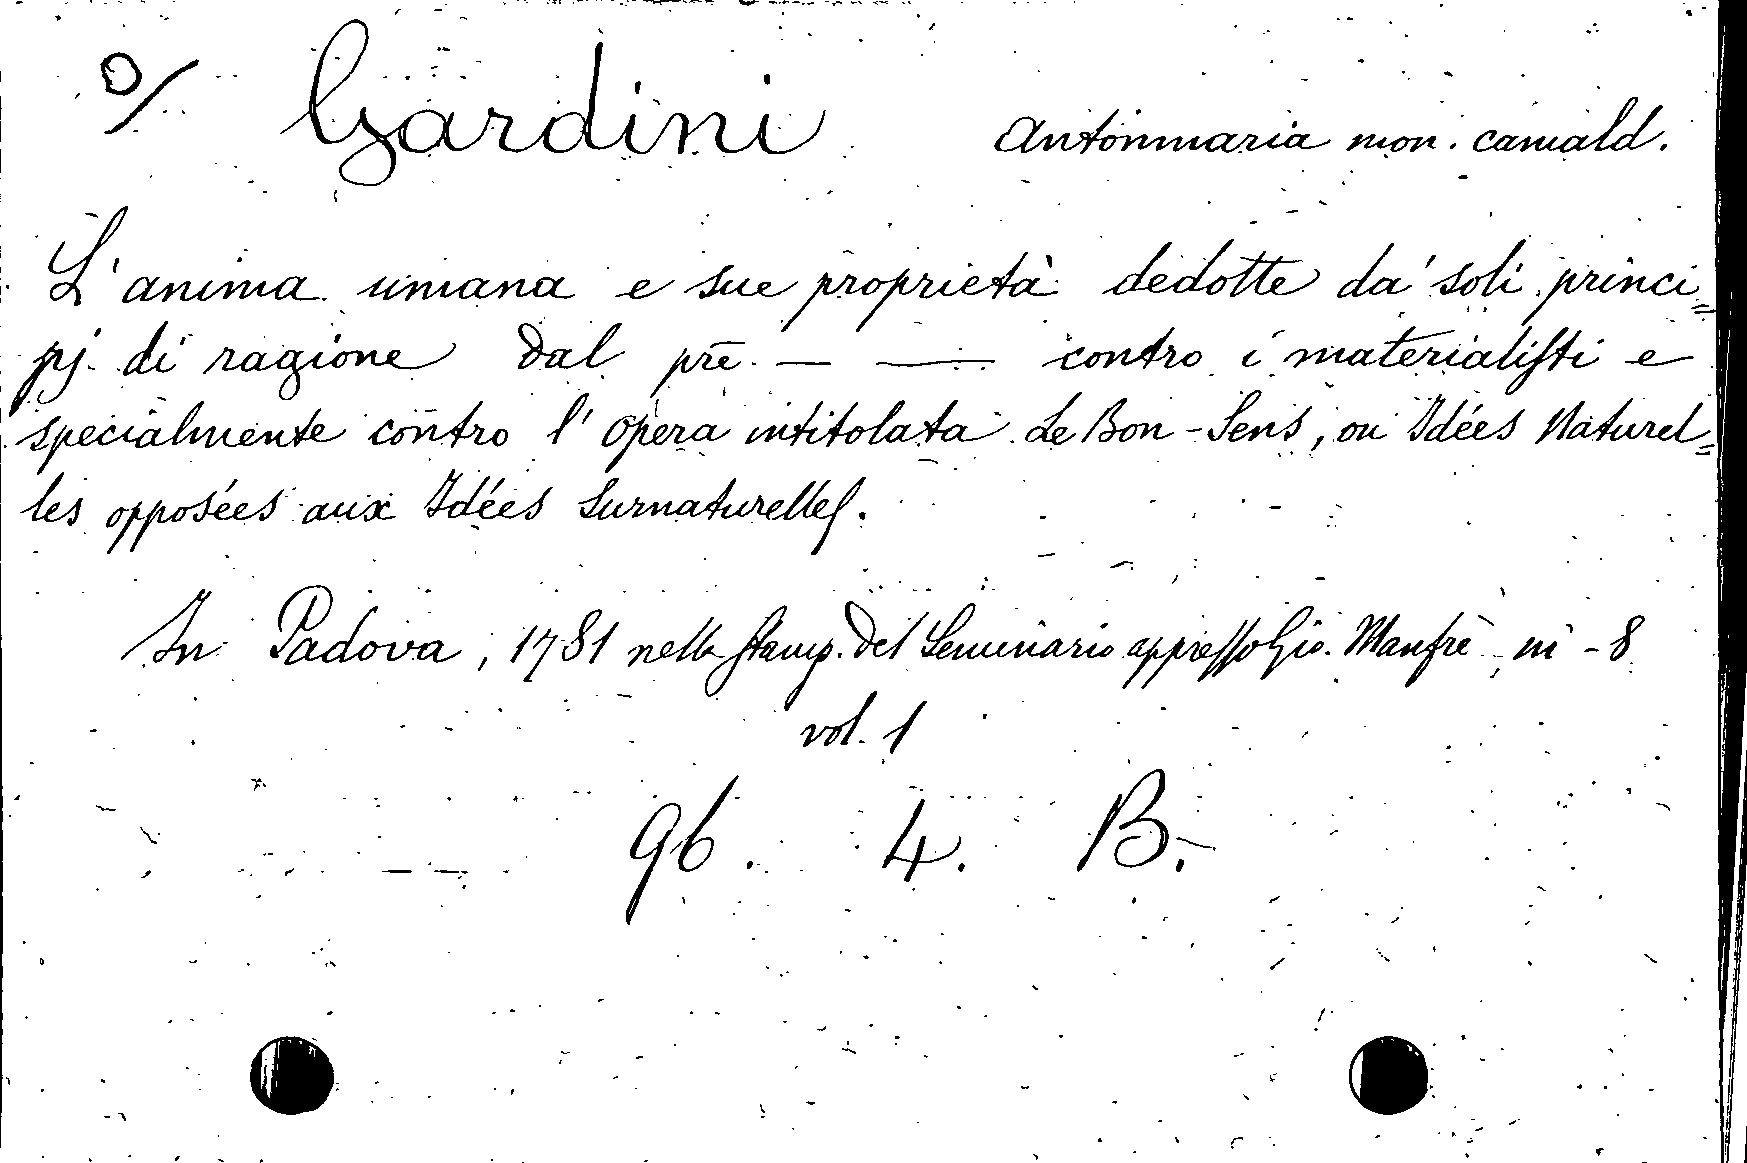 O/ Gardini Antonmaria mon. camald.
L'anima umana e sue proprietà dedotte da' soli princi=
pj di ragione dal prē — — contro i materialisti e
specialmente contro l'opera intitolata Le Bon-Sens, ou Idées Naturel=
les opposées aux Idées Surnaturelles.
In Padova, 1781 nella stamp. del Seminario appresso Gio. Manfrè in-8
vol. 1
96. 4. B.